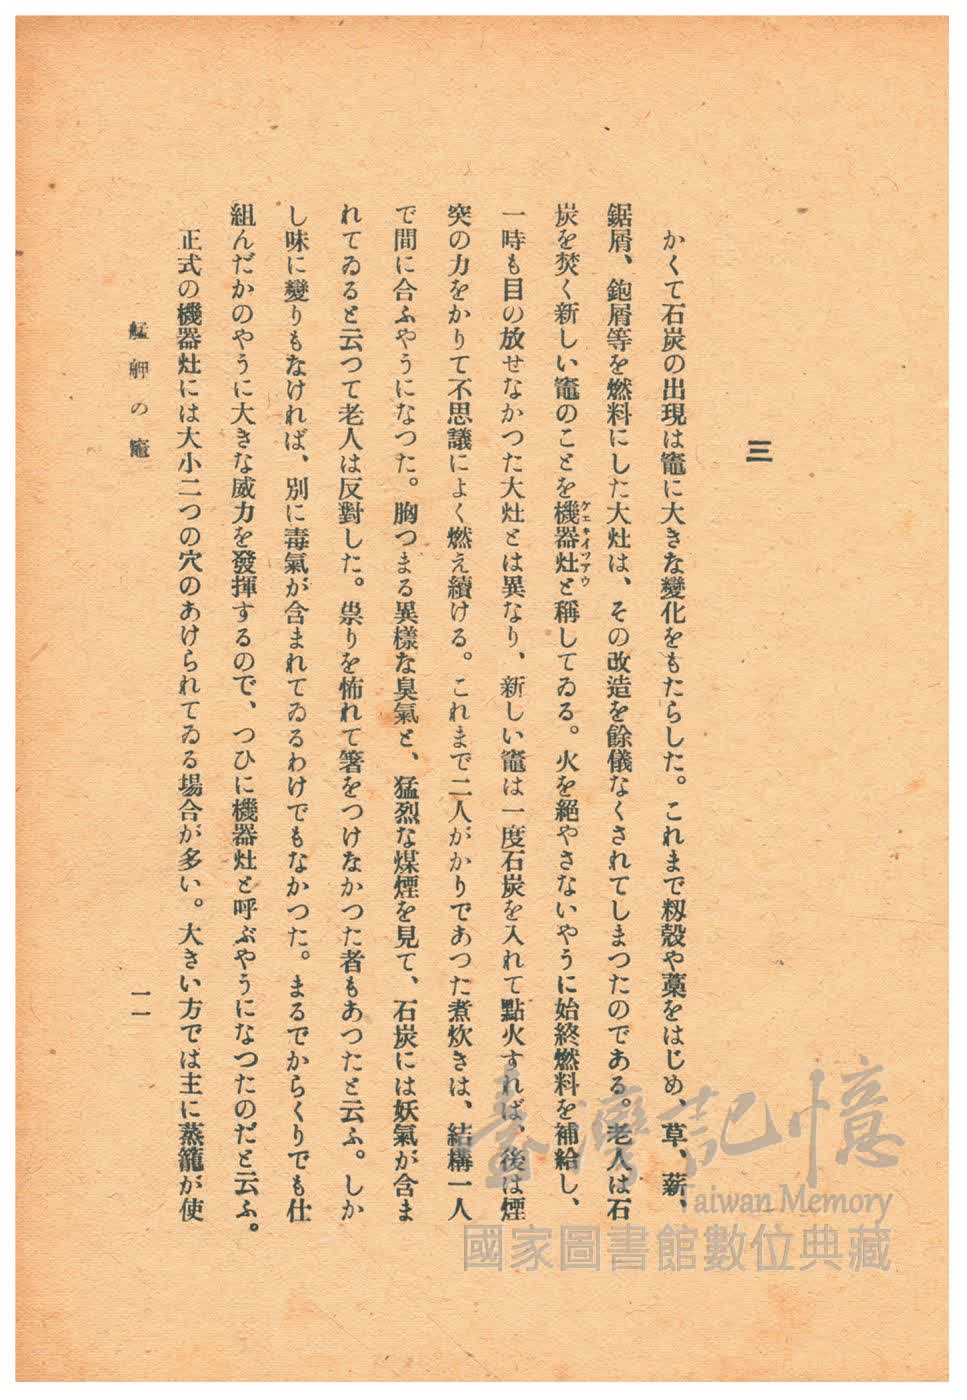 三
かくて石炭の出現は竈に大きな變化をもたらした。これまで籾殼や藁をはじめ、草、薪、
鋸屑、鉋屑等を燃料にした大灶は、その改造を餘儀なくされてしまつたのである。老人は石
炭を焚く新しい竈のことを機器灶と稱してゐる。火を絶やさないやうに始終燃料を補給し、
ケエキイツアウ
一時も目の放せなかつた大灶とは異なり、新しい竈は一度石炭を入れて點火すれば、後は煙
突の力をかりて不思議によく燃え續ける。これまで二人がかりであつた煮炊きは、結構一人
で間に合ふやうになつた。胸つまる異樣な臭氣と、猛烈な煤煙を見て、石炭には妖氣が含ま
れてゐると云つて老人は反對した。祟りを怖れて箸をつけなかつた者もあつたと云ふ。しか
し味に變りもなければ、別に毒氣が含まれてゐるわけでもなかつた。まるでからくりでも仕
組んだかのやうに大きな威力を發揮するので、つひに機器灶と呼ぶやうになつたのだと云ふ。
正式の機器灶には大小二つの穴のあけられてゐる場合が多い。大きい方では主に蒸籠が使
艋舺の竈
一一
臺灣記憶
Taiwan Memory
國家圖書館數位典藏